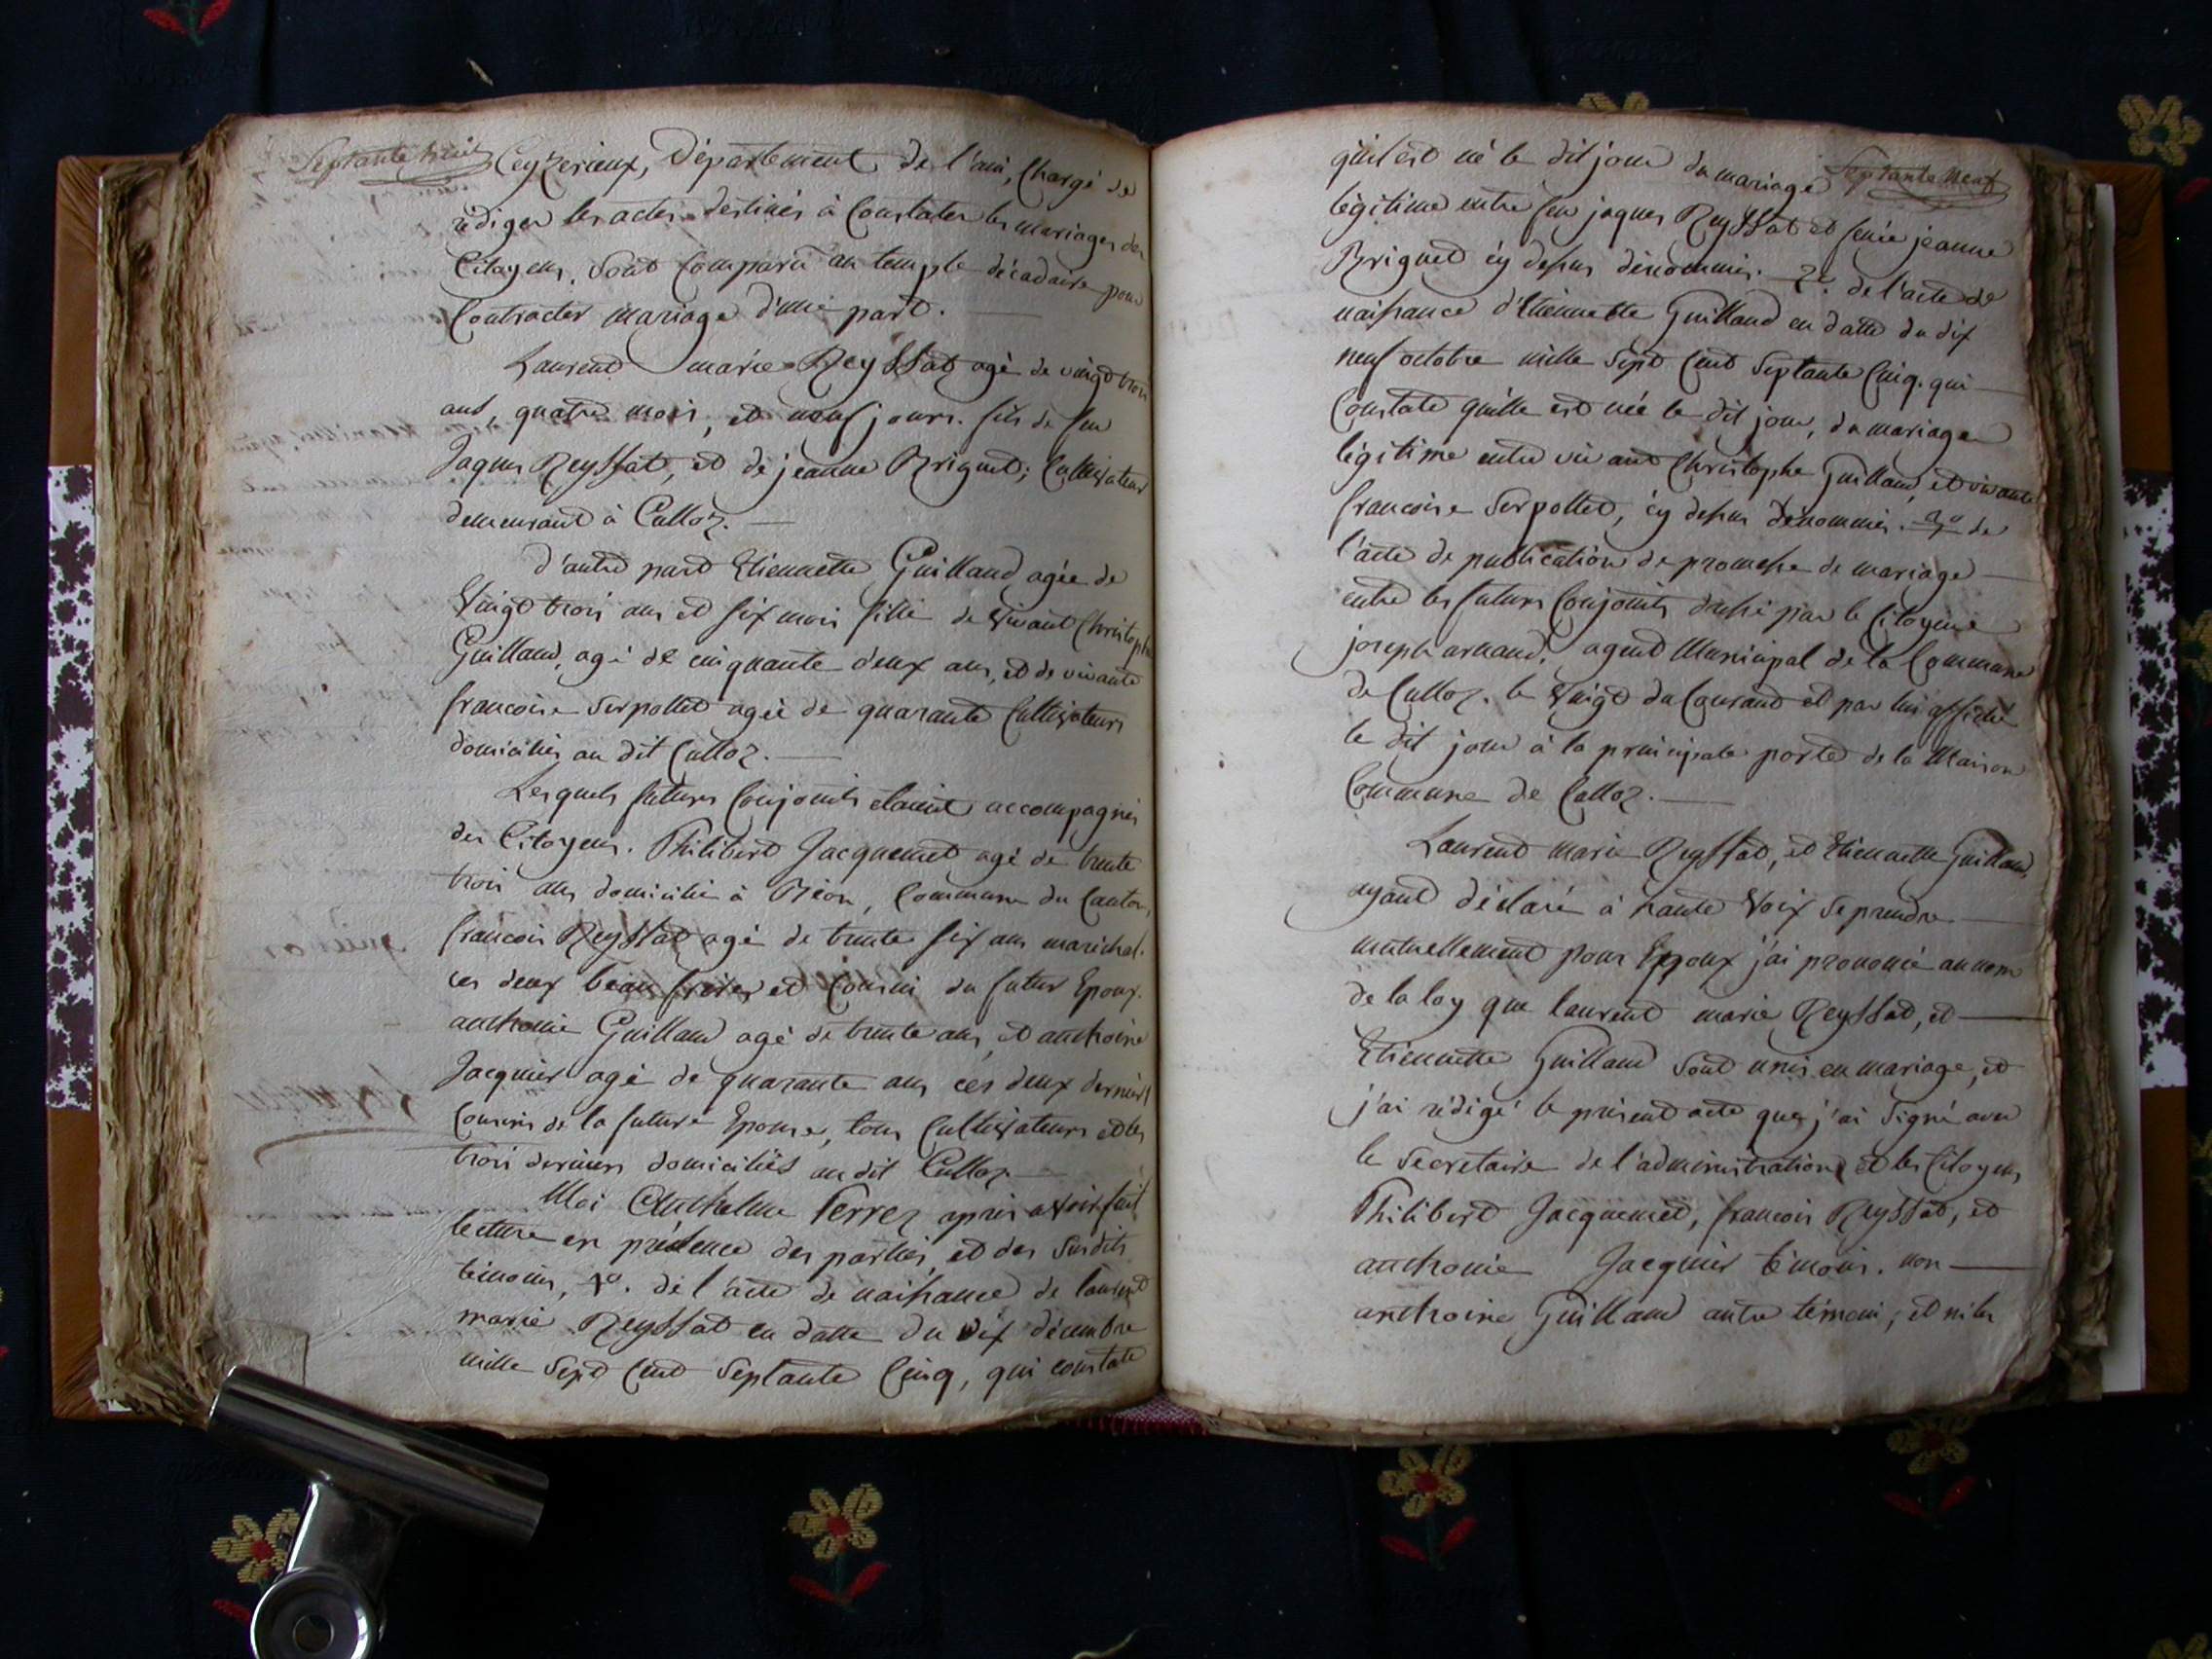 Septante huit
Ceyzerieux, Département de l'ain, Chargé de
rédiger les actes destinés à Constater les mariages des
Citoyens, Sont Comparu au temple décadaire pour
Contracter Mariage d'une part.
Laurent marie Reyssat agé de vingt trois
ans, quatre mois, et neuf jours. fils de feu
Jaques Reyssat, et de jeanne Briguet; Cultivateur
demeurant à Culloz.
d'autre part Etiennette Guilland agée de
Vingt trois ans et six mois fille de Vivant Christophe
Guilland, agé de cinquante deux ans, et de vivante
francoise Serpollet agée de quarante Cultivateurs
domiciliés au dit Culloz.
Lesquels futurs Conjoints etaient accompagnés
des Citoyens. Philibert Jacquemet agé de trente
trois ans domicilié à Béon, Commune du Canton,
francois Reyssat agé de trente six ans maréchal.
ces deux beau frères et Cousin du futur Epoux.
anthoine Guilland agé de trente ans, et anthoine
Jacquier agé de quarante ans ces deux derniers
Cousins de la future Epouse, tous Cultivateurs et les
trois derniers domiciliés au dit Culloz
Moi Anthelme Ferrez après avoir fait
lecture en présence des parties, et des Susdits
témoins, 1º. de l'acte de naissance de laurent
marie Reyssat en datte du dix décembre
mille Sept Cent Septante Cinq, qui constate
Septante Neuf
qu'il est né le dit jour du mariage
légitime entre feu jaques Reyssat et feüe jeanne
Briguet cy dessus dénommés. 2º. de l'acte de
naissance d'Etiennette Guilland en datte du dix
neuf octobre mille Sept Cent Septante Cinq. qui
Constate qu'elle est née le dit jour, du mariage
légitime entre vivant Christophe Guilland, et vivante
francoise Serpollet, cy dessus dénommés. 3º de
l'acte de publication de promesse de mariage
entre les futurs Conjoints dressé par le Citoyen
joseph arnaud, agent Municipal de la Commune
de Culloz. le Vingt du Courant et par lui affiché
le dit jour à la principale porte de la Maison
Commune de Culloz.
Laurent marie Reyssat, et Etiennette Guilland,
ayant déclaré à haute Voix Se prendre
mutuellement pour Epoux j'ai prononcé au nom
de la loy que laurent marie Reyssat, et
Etiennette Guilland Sont unis en mariage, et
j'ai rédigé le présent acte que j'ai Signé avec
le Secretaire de l'administration et les Citoyens
Philibert Jacquemet, francois Reyssat, et
anthoine Jacquier témoins. non
anthoine Guilland autre témoin, et ni les